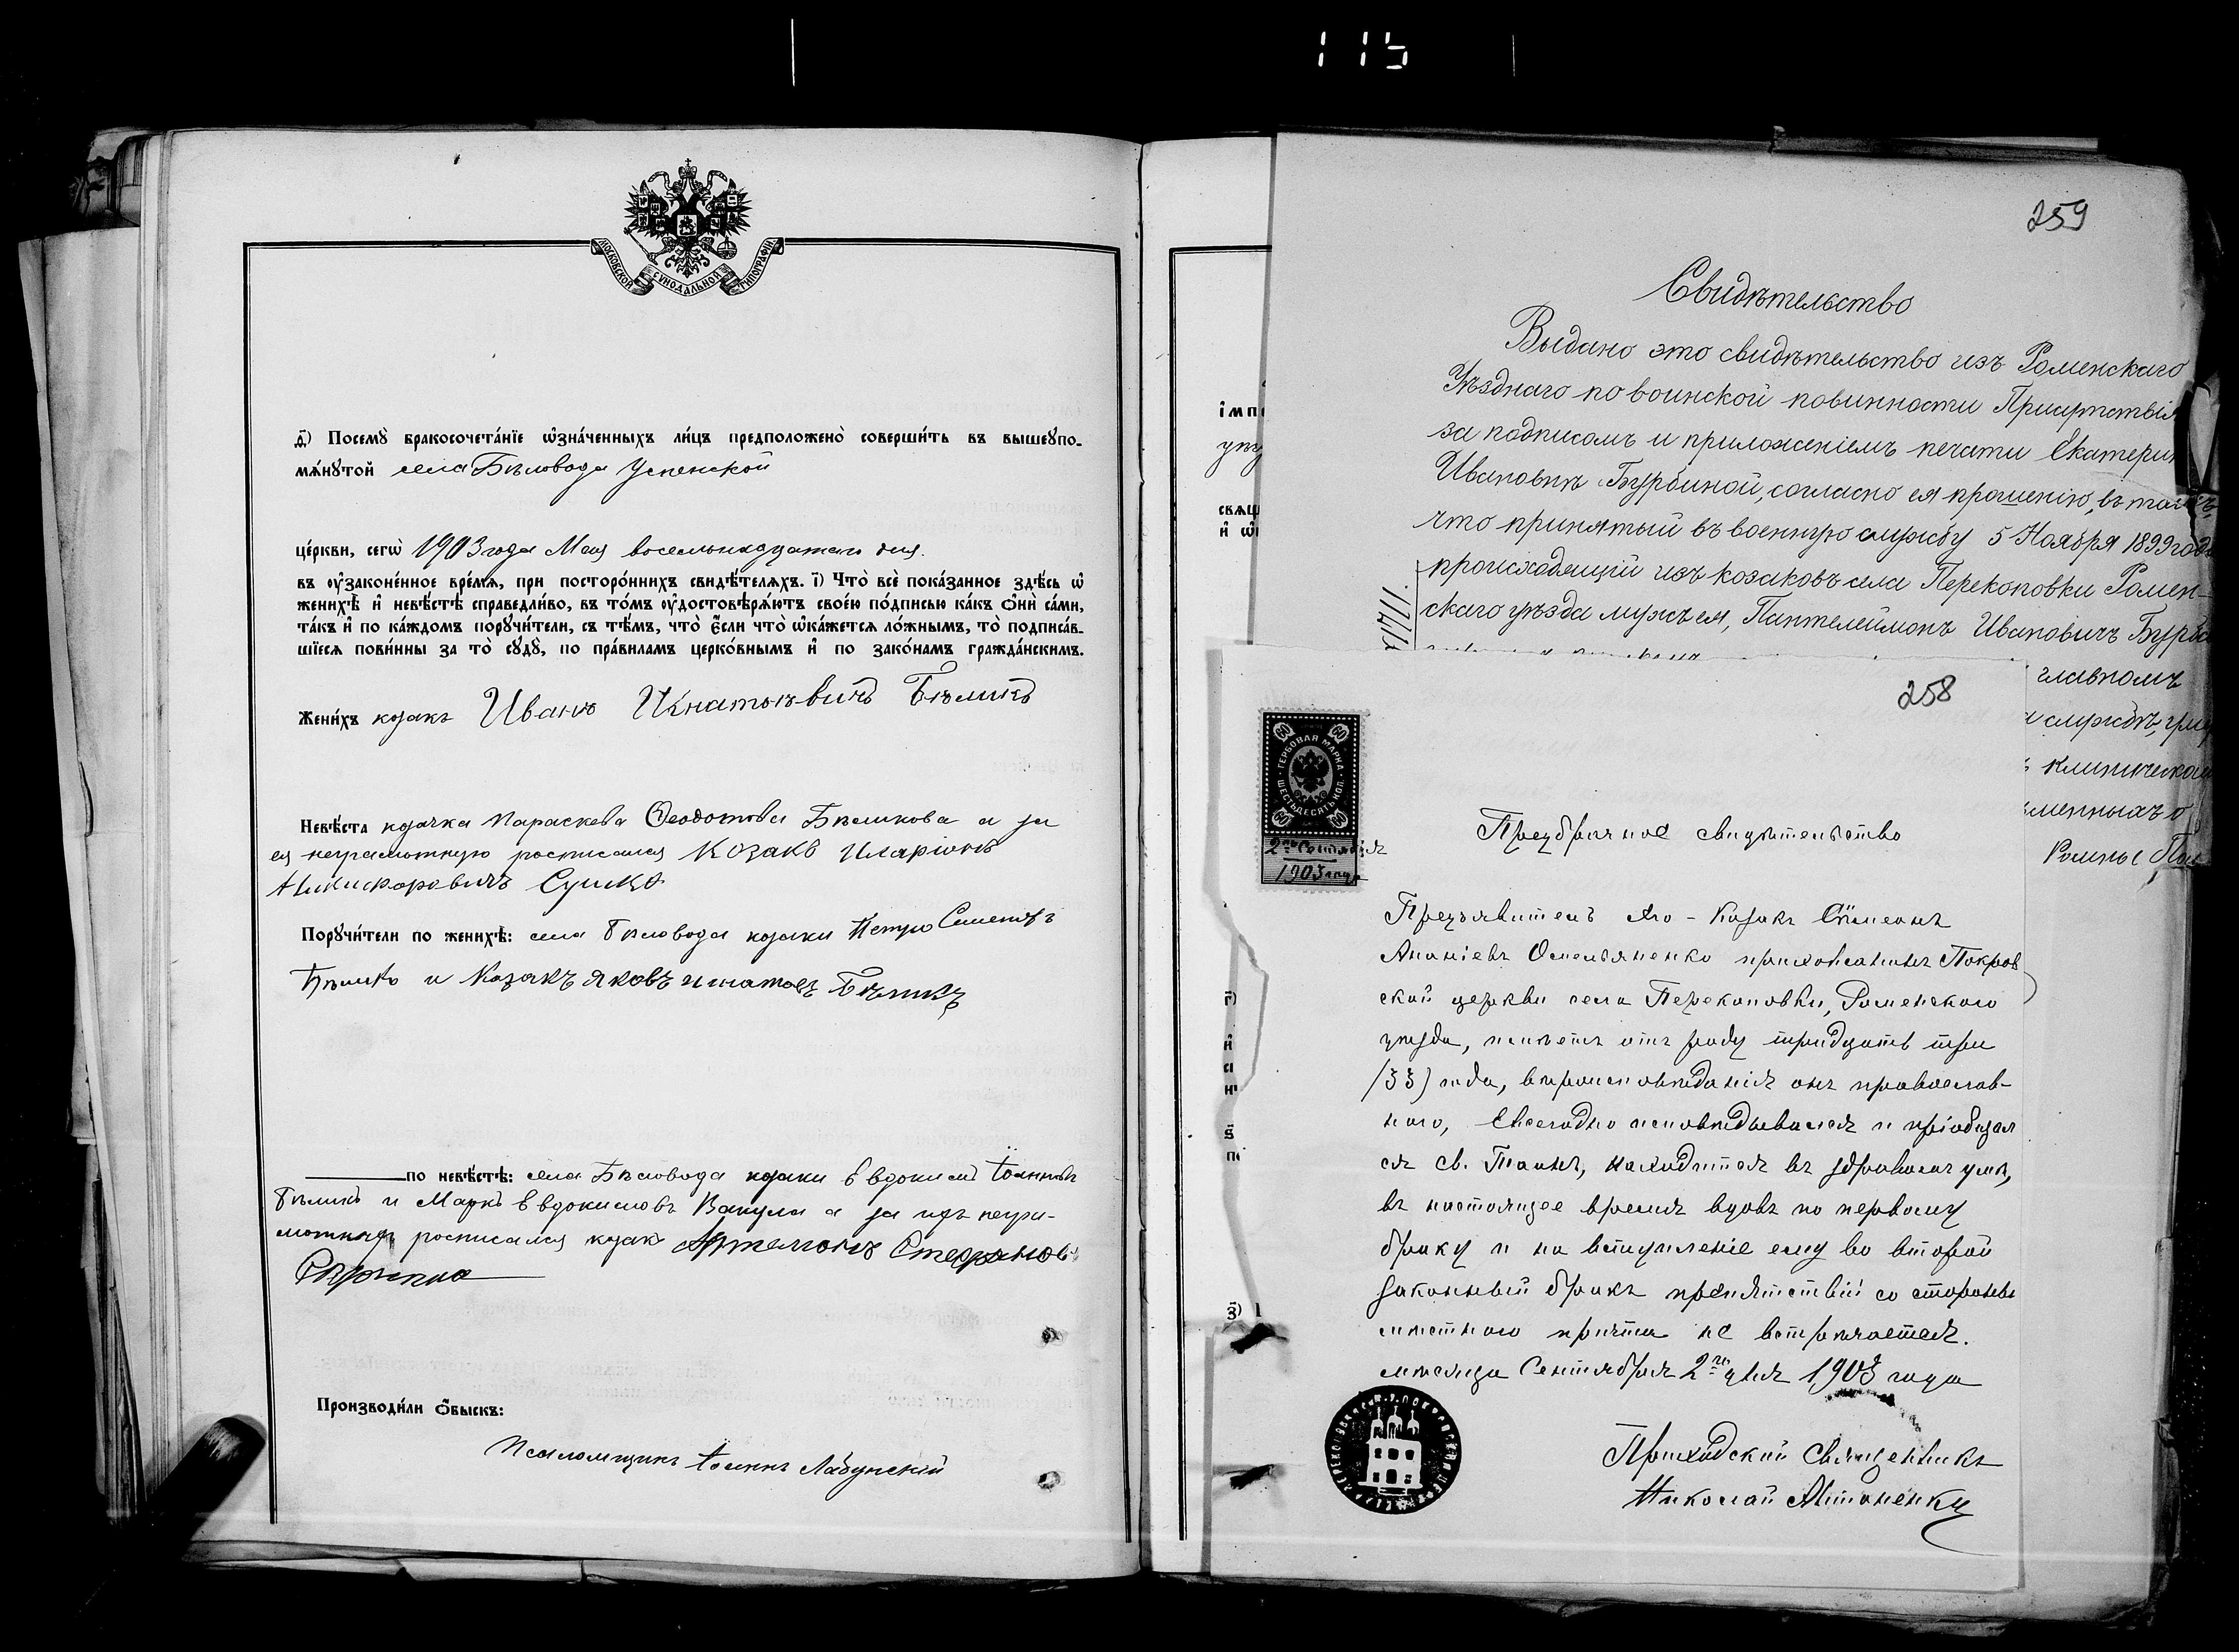 115
МОСКОВСКОЙ СѴНОДАЛЬНОЙ ТИПОГРАФІИ
д҃) Посемꙋ̀ бракосочета́нїе ѡ҆зна́ченныхъ ли́цъ предположено̀ соверши́ть въ вышеꙋпо-
мѧ́нꙋтой села Бѣловода Успенской
це́ркви, сегѡ̀ 1903 года Мая восемьнадцатаго дня.
въ ᲂу҆зако́ненное вре́мѧ, при посторо́ннихъ свидѣ́телѧхъ. і҃) Что̀ всѐ пока́занное здѣ́сь ѡ҆
женихѣ̀ и҆ невѣ́стѣ справедли́во, въ то́мъ ᲂу҆достовѣрѧ́ютъ свое́ю по́дписью ка́къ ѻ҆нѝ са́ми,
та́къ и҆ по ка́ждомъ порꙋчи́тели, съ тѣ́мъ, что̀ є҆́сли что̀ ѡ҆ка́жетсѧ ло́жнымъ, то̀ подписа́в-
шїесѧ пови́нны за то̀ сꙋдꙋ̀, по пра́виламъ церко́внымъ и҆ по зако́намъ гражда́нскимъ.
Жени́хъ козакъ Иванъ Игнатьевичъ Бѣликъ
Невѣ́ста козачка Параскева Ѳеодотова Бѣликова а за
ея неграмотную росписался Козакъ Иларіонъ
Никифоровичъ Сушко
Порꙋчи́тели по женихѣ̀: села Бѣловода козаки Петро Семеновъ
Бѣлико и Козакъ Яковъ Игнатовъ Бѣликъ
по невѣ́стѣ: села Бѣловода козаки Евдокимъ Іоанновъ
Бѣликъ и Маркъ Евдокимовъ Вакула а за ихъ негра-
мотныхъ росписался козак Артемонъ Стефановъ
Производи́ли ѻ҆́быскъ:
Псаломщикъ Іоаннъ Лабунскій
імп
свѧщ
259
Свидѣтельство
Выдано это свидѣтельство изъ Роменскаго
Уѣзднаго по воинской повинности Присутствія
за подписомъ и приложеніемъ печати Екатерин
Ивановнѣ Бурбиной, согласно ея прошенію, въ томъ,
что принятый въ военную службу 5 Ноября 1899 года
происходящій изъ козаковъ села Перекоповки Ромен-
скаго уѣзда мужъ ея, Пантелеймонъ Ивановичъ Бурб
главномъ
службѣ,
клиническом
менныхъ о
Ромны
258
60 ГЕРБОВАЯ МАРКА 60
ШЕСТЬДЕСЯТЪ КОП.
2го Сентября
1903 года
Предбрачное свидѣтельство
Предъявитель сего - Козакъ Симеонъ
Ананіевъ Омельяненко прихожанинъ Покров
ской церкви села Перекоповки, Роменскаго
уѣзда, имѣетъ отъ роду тридцать три
(33) года, вѣроисповѣданія онъ православ-
наго, Ежегодно исповѣдывался и пріобщал
ся св. Таинъ, находится въ здравомъ умѣ,
въ настоящее время вдовъ по первому
браку и на вступленіе ему во второй
законный бракъ препятствій со стороны
мѣстнаго причта не встрѣчается.
мѣсяца Сентября 2го дня 1903 года
Приходскій Священникъ
Николай Антоненко